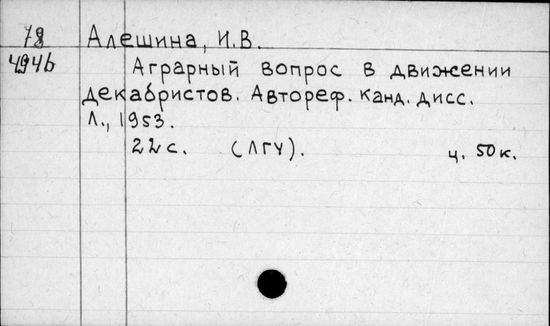 78 Алешина, И.В.
494b Аграрный вопрос в движении
декабристов. Автореф. канд. дисс.
Л., 1953.
22 с. (ЛГУ). ц. 50 к.